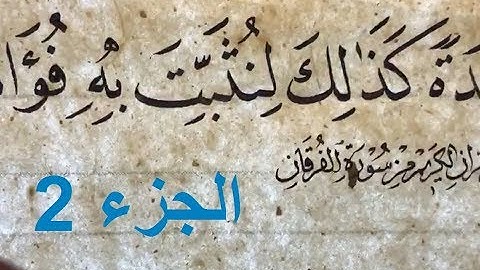 دَةً كَذَٰلِكَ لِنُثَبِّتَ بِهِ فُؤَا
الكريم من سورة الفرقان
الجزء 2